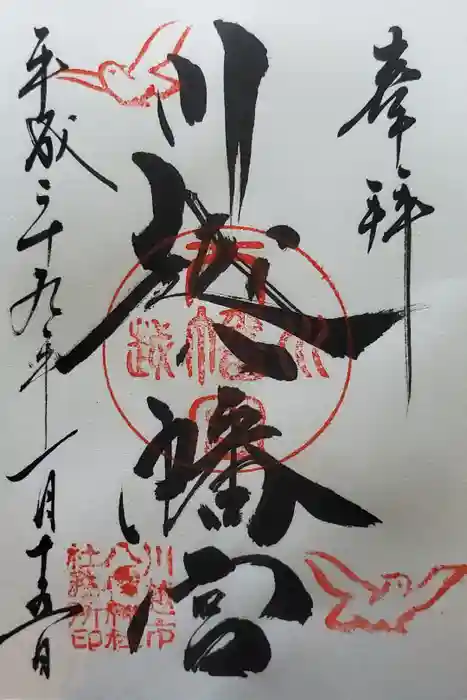 奉拝
川越八幡宮
平成二十九年一月十五日
川越市
八幡神社
社務所印